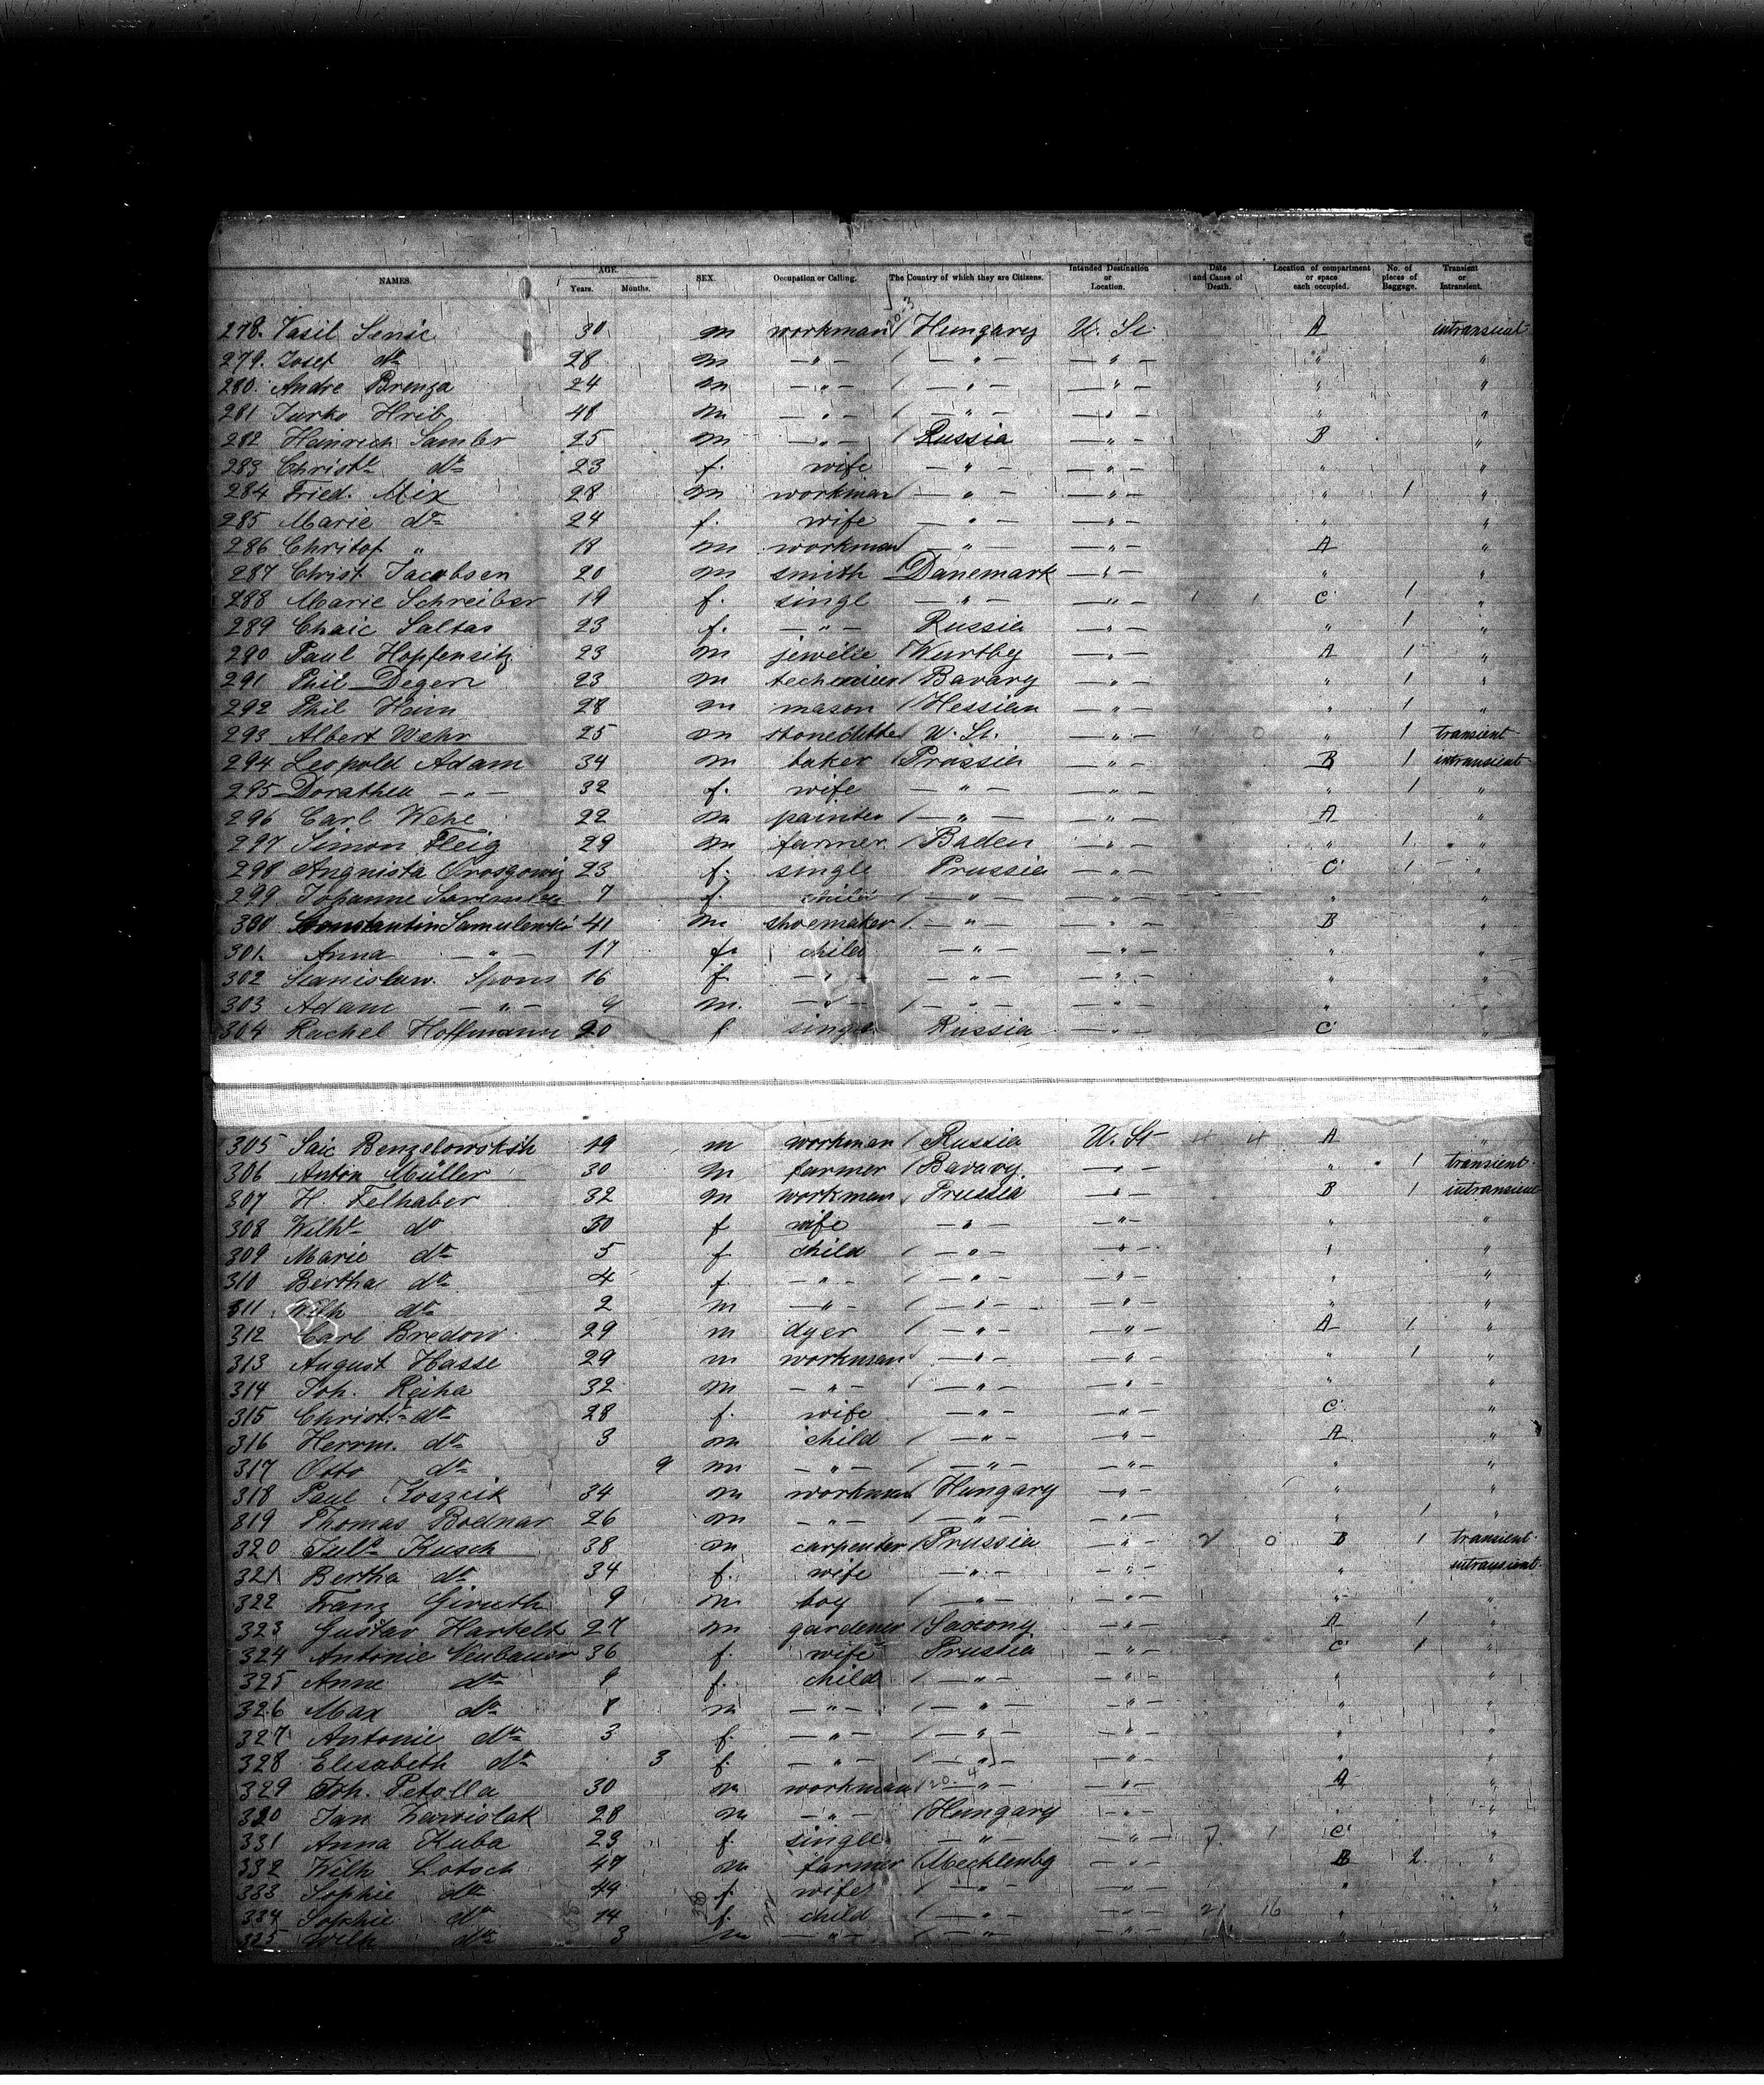 NAMES. AGE. Years. Months. SEX. Occupation or Calling. The Country of which they are Citizens. Intended Destination or Location. Date and Cause of Death. Location of compartment or space each occupied. No. of pieces of Baggage. Transient or Intransient.
278. Vasil Senic 30 m workman Hungary U. St. A intransient
279. Josef do 28 m " " " " "
280. Andre Brenza 24 m " " " " "
281 Jurko Hrib 48 m " " " " "
282 Heinrich Sambr 25 m " Russia " B "
283 Christe do 23 f. wife " " " "
284 Fried. Mix 28 m workman " " " 1 "
285 Marie do 24 f. wife " " " "
286 Christof " 18 m workman " " A "
287 Christ Jacobsen 20 m smith Danemark " " "
288 Marie Schreiber 19 f. singl " " C 1 "
289 Chaic Saltas 23 f. " Russia " " 1 "
290 Paul Hopfensitz 23 m jewelie Wurtbg " A 1 "
291 Phil Degen 23 m Bavary " " 1 "
292 Phil Hain 28 m mason Hessian " " 1 "
293 Albert Wehr 25 m U. St. " 0 " 1 transient
294 Leopold Adam 34 m baker Prussia " B 1 intransient
295 Dorathea " 32 f. wife " " " 1 "
296 Carl Wehe 22 m painter " " A "
297 Simon Fleig 29 m farmer Baden " " 1 "
298 Augusta 23 f. single Prussia " C 1 "
299 Johanne 7 f. child " " " "
300 Constantin Samulewski 41 m shoemaker " " B "
301. Anna " 17 f. child " " " "
302 Stanislaw. Spons 16 f. " " " " "
303 Adam " 9 m. " " " " "
304 Rachel Hoffmann 20 f singl Russia " C "
305 Saic Benzelowsksh 19 m workman Russia U. St 4 4 A "
306 Anton Müller 30 m farmer Bavary " " 1 transient
307 H Felhaber 32 m workman Prussia " B 1 intransient
308 Wilhe do 30 f wife " " " "
309 Marie do 5 f child " " " "
310 Bertha do 4 f. " " " " "
311 Wilh do 2 m " " " " "
312 Carl Bredow 29 m dyer " " A 1 "
313 August Hasse 29 m workman " " " 1 "
314 Joh. Reiha 32 m " " " " "
315 Christe do 28 f. wife " " C "
316 Herrm. do 3 m child " " A "
317 Otto do 9 m " " " " "
318 Paul Koszcik 34 m workman Hungary " " "
319 Thomas Bodnar 26 m " " " " 1 "
320 Juls Kusch 38 m carpenter Prussia " 2 0 B 1 transient
321 Bertha do 34 f. wife " " " intransient
322 Franz Giruth 9 m boy " " " "
323 Gustav Hartelt 27 m gardener Saxony " A 1 "
324 Antonie Neubauer 36 f. wife Prussia " C 1 "
325 Anne do 9 f. child " " " "
326 Max do 8 m " " " " "
327 Antonie do 3 f. " " " " "
328 Elisabeth do 3 f. " " " " "
329 Joh. Petolla 30 m workman " " A "
320 Jan Zawiolak 28 m " Hungary " " "
331 Anna Kuba 23 f. single " " 7 1 C "
332 Wilh Lotsch 47 m farmer Mecklenbg " B 2 "
333 Sophie do 44 f. wife " " " "
334 Sophie do 14 f. child " " 2 16 " "
325 Wilh do 3 m " "